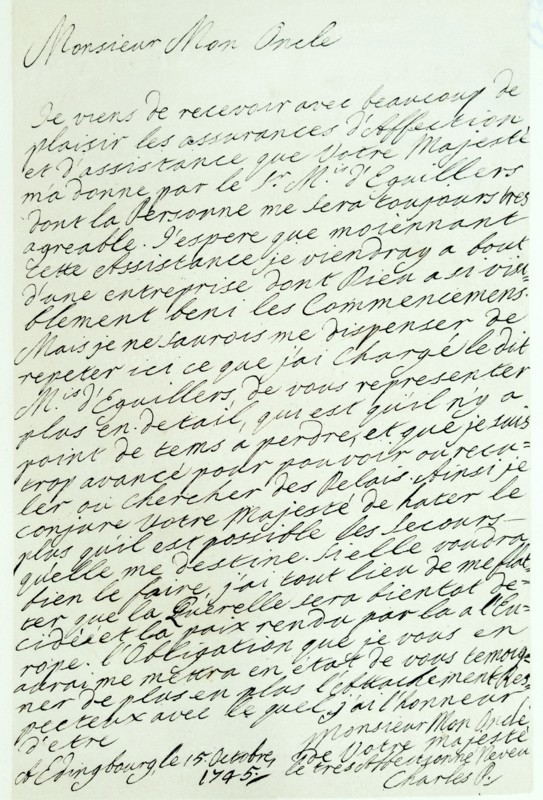 Monsieur Mon Oncle
Je viens de recevoir avec beaucoup de
plaisir les assurances d'Affection
et d'assistance que Votre Majesté
m'a donne par le Sr. Mis. d'Eguillers
dont la Personne me sera toujours tres
agreable. J'espere que moiennant
cette Assistance je viendray a bout
d'une entreprise dont Dieu a si visi=
blement beni les Commencemens.
Mais je ne saurois me dispenser de
repeter ici ce que j'ai Chargé le dit
Mis. d'Eguillers, de vous representer
plus en detail, qui est qu'il n'y a
point de tems a perdre, et que je suis
trop avancé pour pouvoir ou recu=
ler ou Chercher des Delais. Ainsi je
conjure Votre Majesté de hater le
plus qu'il est possible les Secours
qu'elle me destine. Si elle voudra
bien le faire, j'ai tout lieu de me flat=
ter que la Querelle sera bientot de=
cidée et la paix rendu par la a l'Eu=
rope. l'Obligation que je vous en
aurai me mettra en état de vous temoig=
ner de plus en plus l'attachement Res=
pecteux avec le quel j'ai l'honneur
d'etre
Monsieur Mon Oncle
De Votre Majesté
a Edingbourg, le 15. Octobre,
1745.
le tres Affectionne Neveu
Charles P.